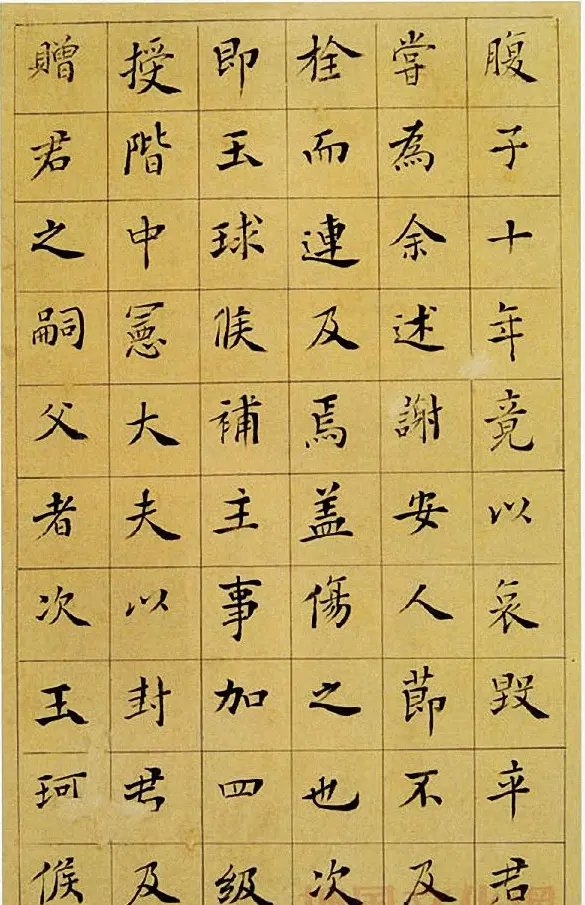 腹子十年竟以哀毀卒君
嘗為余述謝安人節不及
栓而連及焉盖傷之也次
即玉球候補主事加四級
授階中憲大夫以封君及
贈君之嗣父者次玉珂候